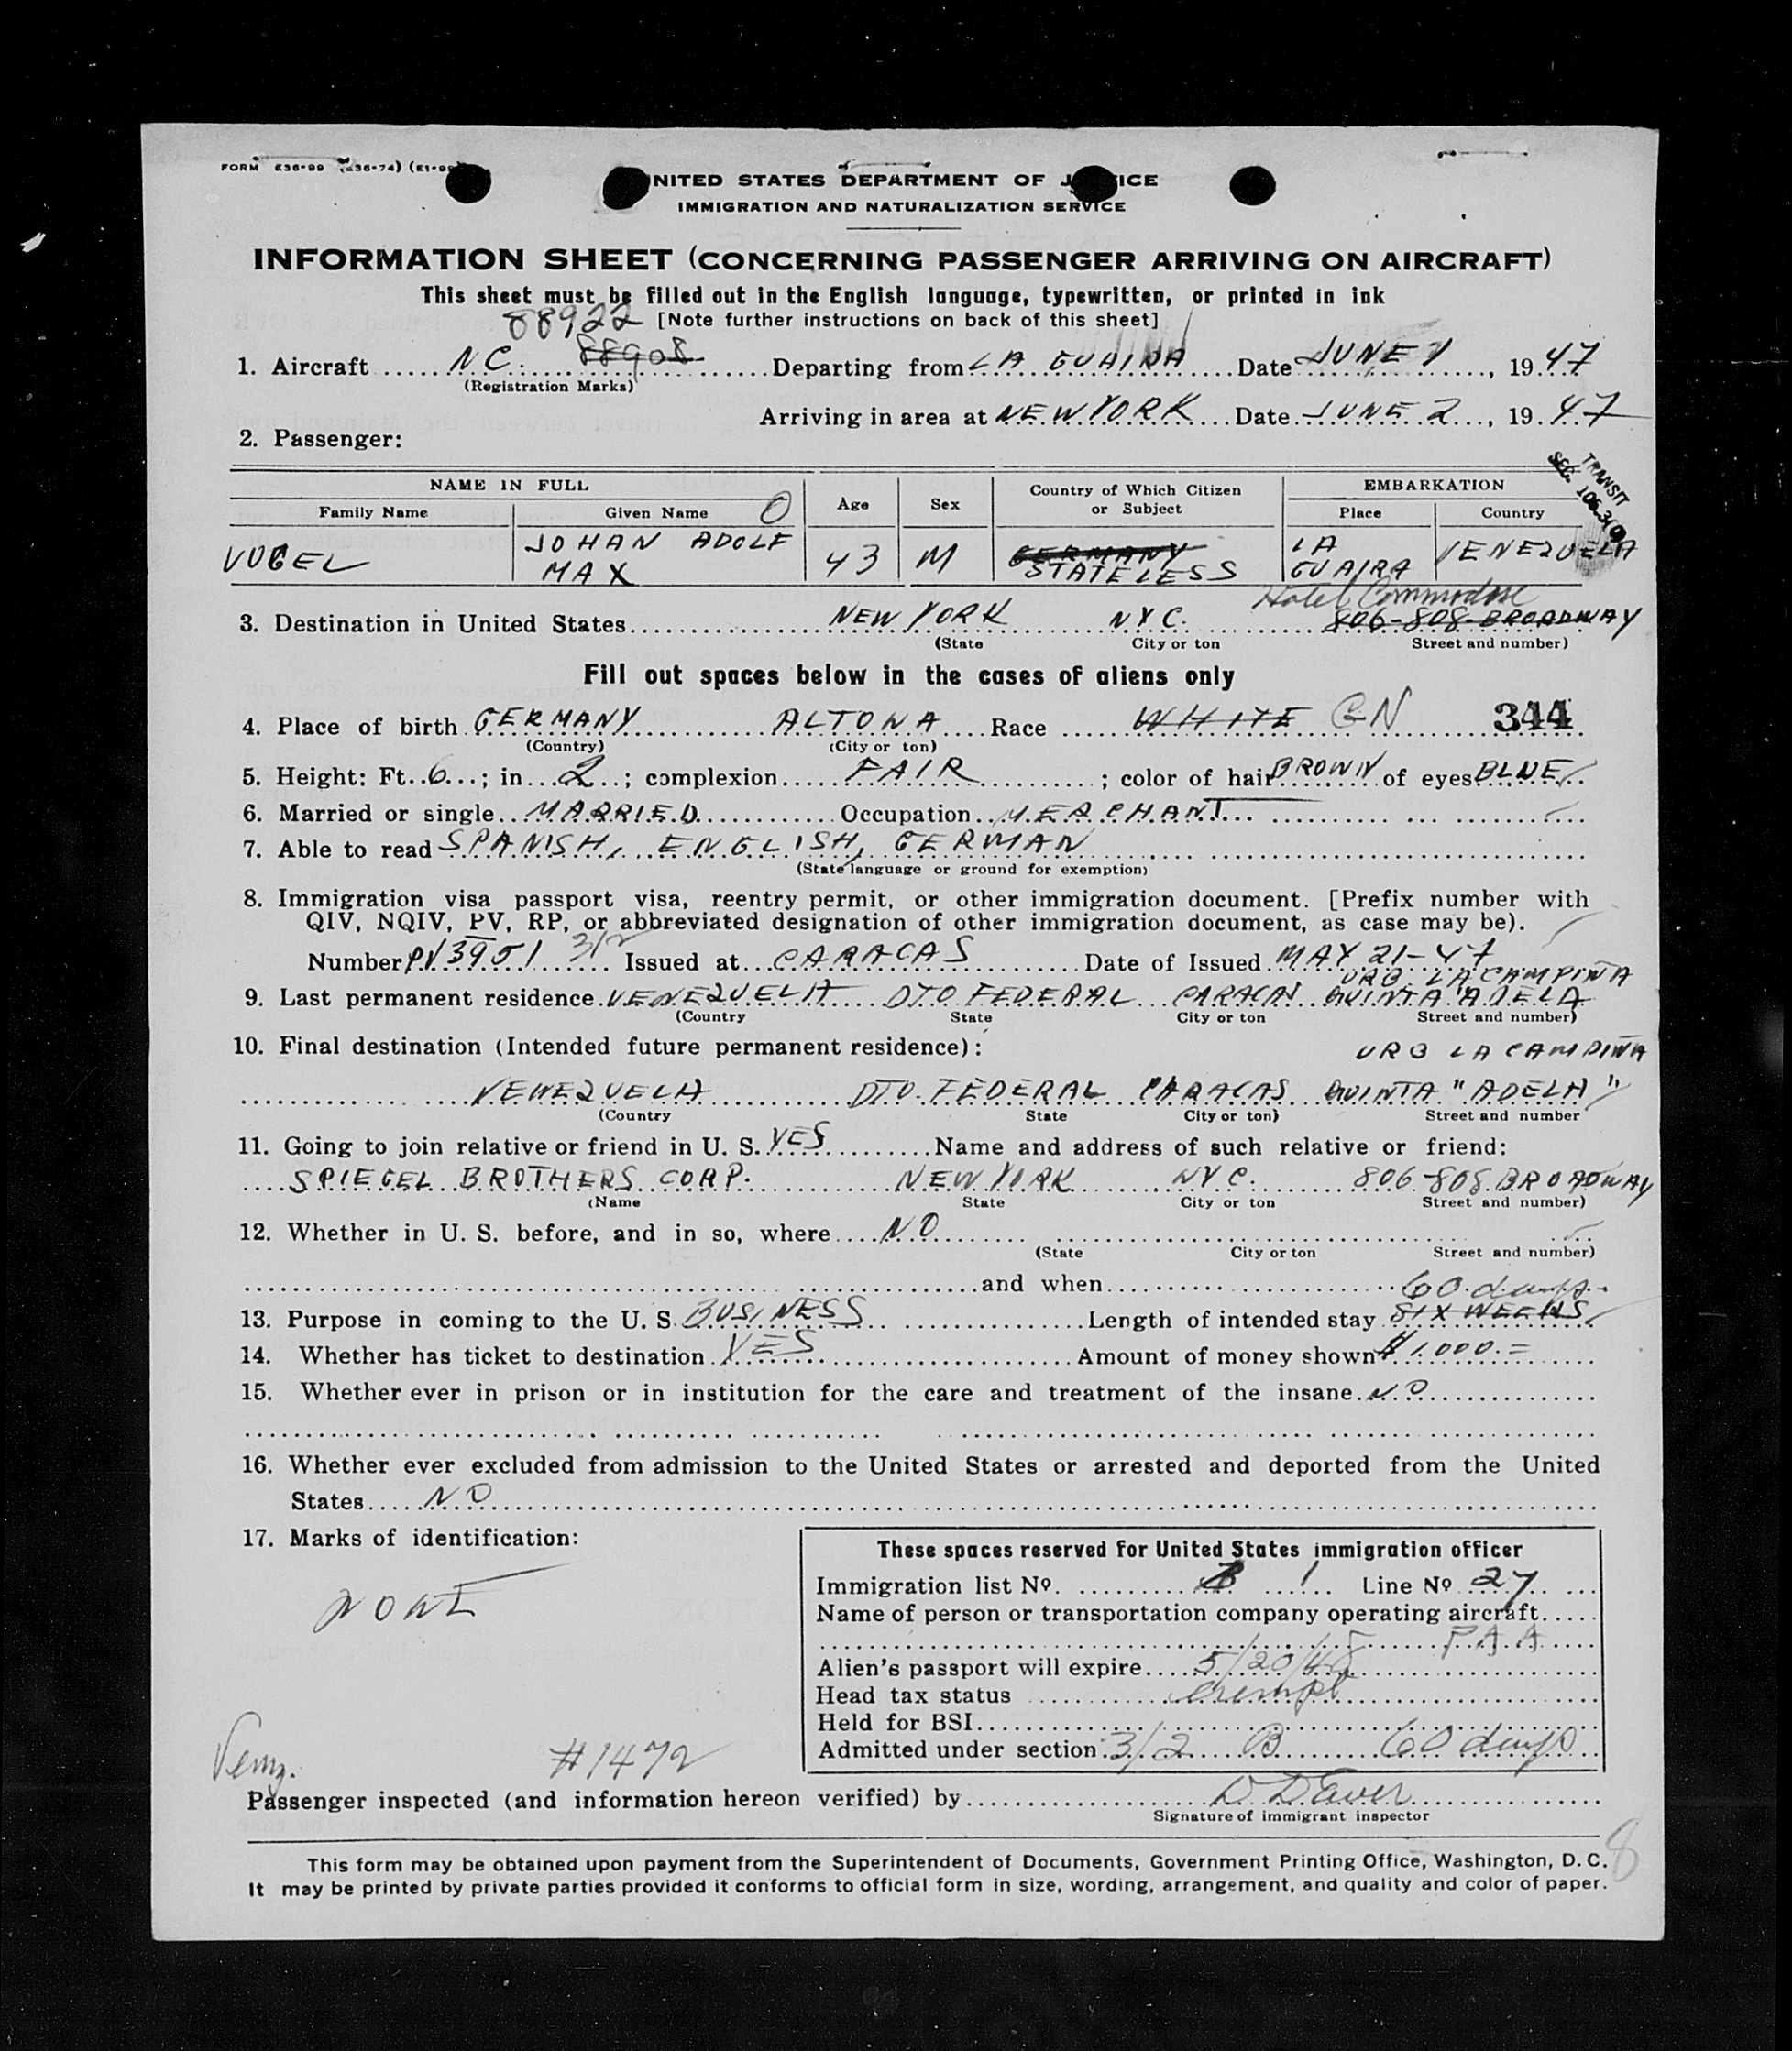 FORM E36-99 (E36-74) (E1-99)
UNITED STATES DEPARTMENT OF JUSTICE
IMMIGRATION AND NATURALIZATION SERVICE
INFORMATION SHEET (CONCERNING PASSENGER ARRIVING ON AIRCRAFT)
This sheet must be filled out in the English language, typewritten, or printed in ink
88922 [Note further instructions on back of this sheet]
1. Aircraft NC. 88908 Departing from LA GUAIRA Date JUNE 1, 1947
(Registration Marks)
Arriving in area at NEW YORK Date JUNE 2, 1947
2. Passenger:
TRANSIT
SEC.
NAME IN FULL Age Sex Country of Which Citizen or Subject EMBARKATION
Family Name Given Name Place Country
VOGEL JOHAN ADOLF MAX 43 M GERMANY STATELESS LA GUAIRA VENEZUELA
Hotel Commodore
3. Destination in United States NEW YORK NYC. 806-808-BROADWAY
(State City or ton Street and number)
Fill out spaces below in the cases of aliens only
4. Place of birth GERMANY ALTONA Race WHITE GN 344
(Country) (City or ton)
5. Height: Ft. 6; in 2; complexion FAIR; color of hair BROWN of eyes BLUE
6. Married or single MARRIED Occupation MERCHANT
7. Able to read SPANISH, ENGLISH, GERMAN
(State language or ground for exemption)
8. Immigration visa passport visa, reentry permit, or other immigration document. [Prefix number with
QIV, NQIV, PV, RP, or abbreviated designation of other immigration document, as case may be).
Number PV3951 3/2 Issued at CARACAS Date of Issued MAY 21-47
URB LA CAMPIÑA
9. Last permanent residence VENEZUELA DTO FEDERAL CARACAS QUINTA "ADELA
(Country State City or ton Street and number)
10. Final destination (Intended future permanent residence): URB LA CAMPIÑA
VENEZUELA DTO. FEDERAL CARACAS QUINTA "ADELA"
(Country State City or ton) Street and number
11. Going to join relative or friend in U. S. YES Name and address of such relative or friend:
SPIEGEL BROTHERS CORP. NEW YORK NYC. 806-808 BROADWAY
(Name State City or ton Street and number)
12. Whether in U. S. before, and in so, where NO
(State City or ton Street and number)
and when 60 days
13. Purpose in coming to the U. S. BUSINESS Length of intended stay SIX WEEKS
14. Whether has ticket to destination YES Amount of money shown $1.000.=
15. Whether ever in prison or in institution for the care and treatment of the insane NO
16. Whether ever excluded from admission to the United States or arrested and deported from the United
States NO
17. Marks of identification:
NONE
These spaces reserved for United States immigration officer
Immigration list No. 1 Line No 27
Name of person or transportation company operating aircraft
PAA
Alien's passport will expire 5/20/48
Head tax status exempt
Held for BSI
Admitted under section 3/2 B 60 days
Venz. #1472
Passenger inspected (and information hereon verified) by
Signature of immigrant inspector
8
This form may be obtained upon payment from the Superintendent of Documents, Government Printing Office, Washington, D. C.
It may be printed by private parties provided it conforms to official form in size, wording, arrangement, and quality and color of paper.